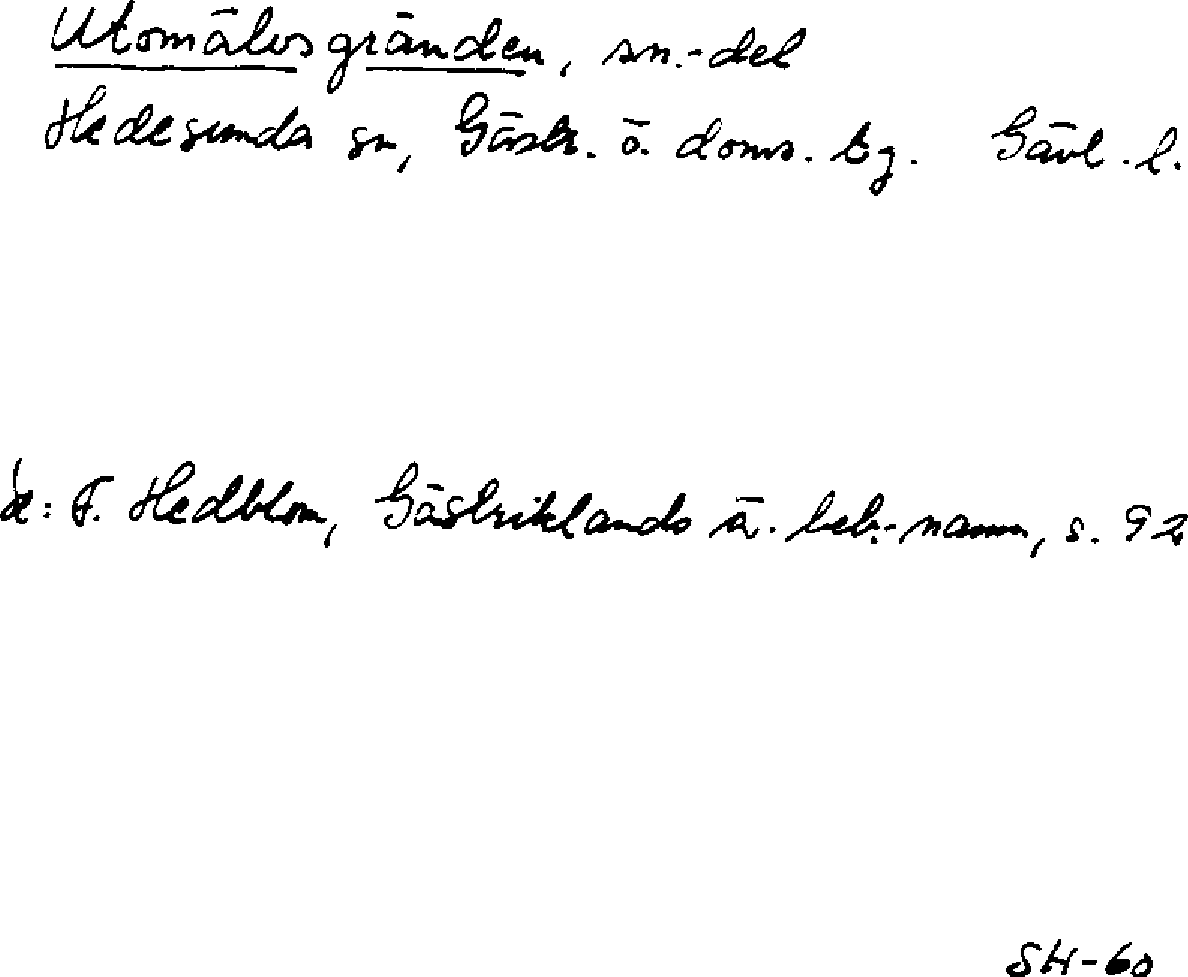 Utomälvsgränden, sn.-del
Hedesunda sn, Gästr. ö. doms. tg. Gävl. l.
å: F. Hedblom, Gästriklands ä. beb.-namn, s. 92
SH-60